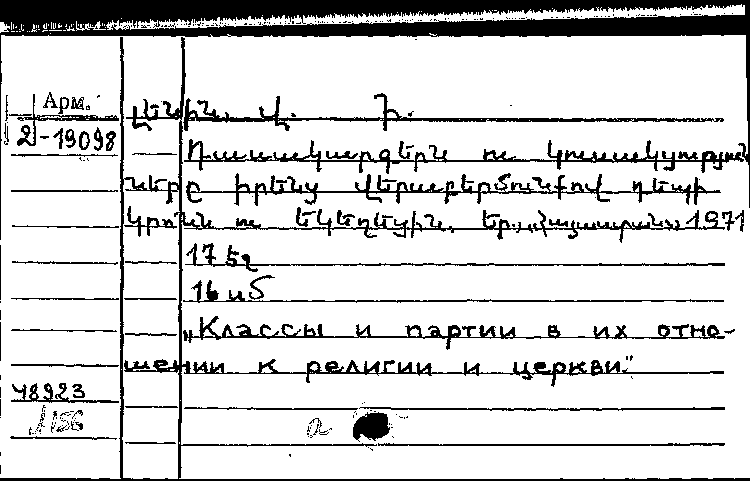 Арм.
2-19098
Լենին. Վ. Ի.
Դասակարգերն ու կուսակցություն
ները իրենց վերաբերմունքով դեպի
կրոնն ու եկեղեցին. Եր., «Հայաստան» 1971
17 էջ
16 սմ
„Классы и партии в их отно-
шении к религии и церкви."
48923
156
a